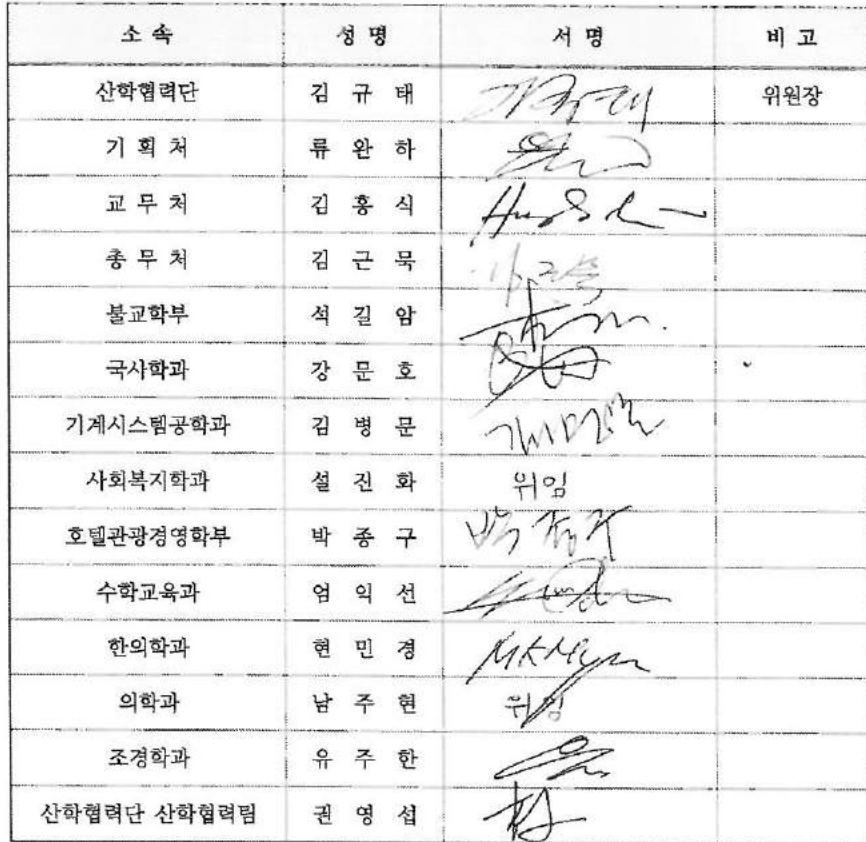 소속 성명 서명 비고
산학협력단 김규태 위원장
기획처 류완하
교무처 김홍식
총무처 김근묵
불교학부 석길암
국사학과 강문호
기계시스템공학과 김병문
사회복지학과 설진화 위임
호텔관광경영학부 박종구 박종구
수학교육과 엄익선
한의학과 현민경
의학과 남주현 위임
조경학과 유주한
산학협력단 산학협력팀 권영섭